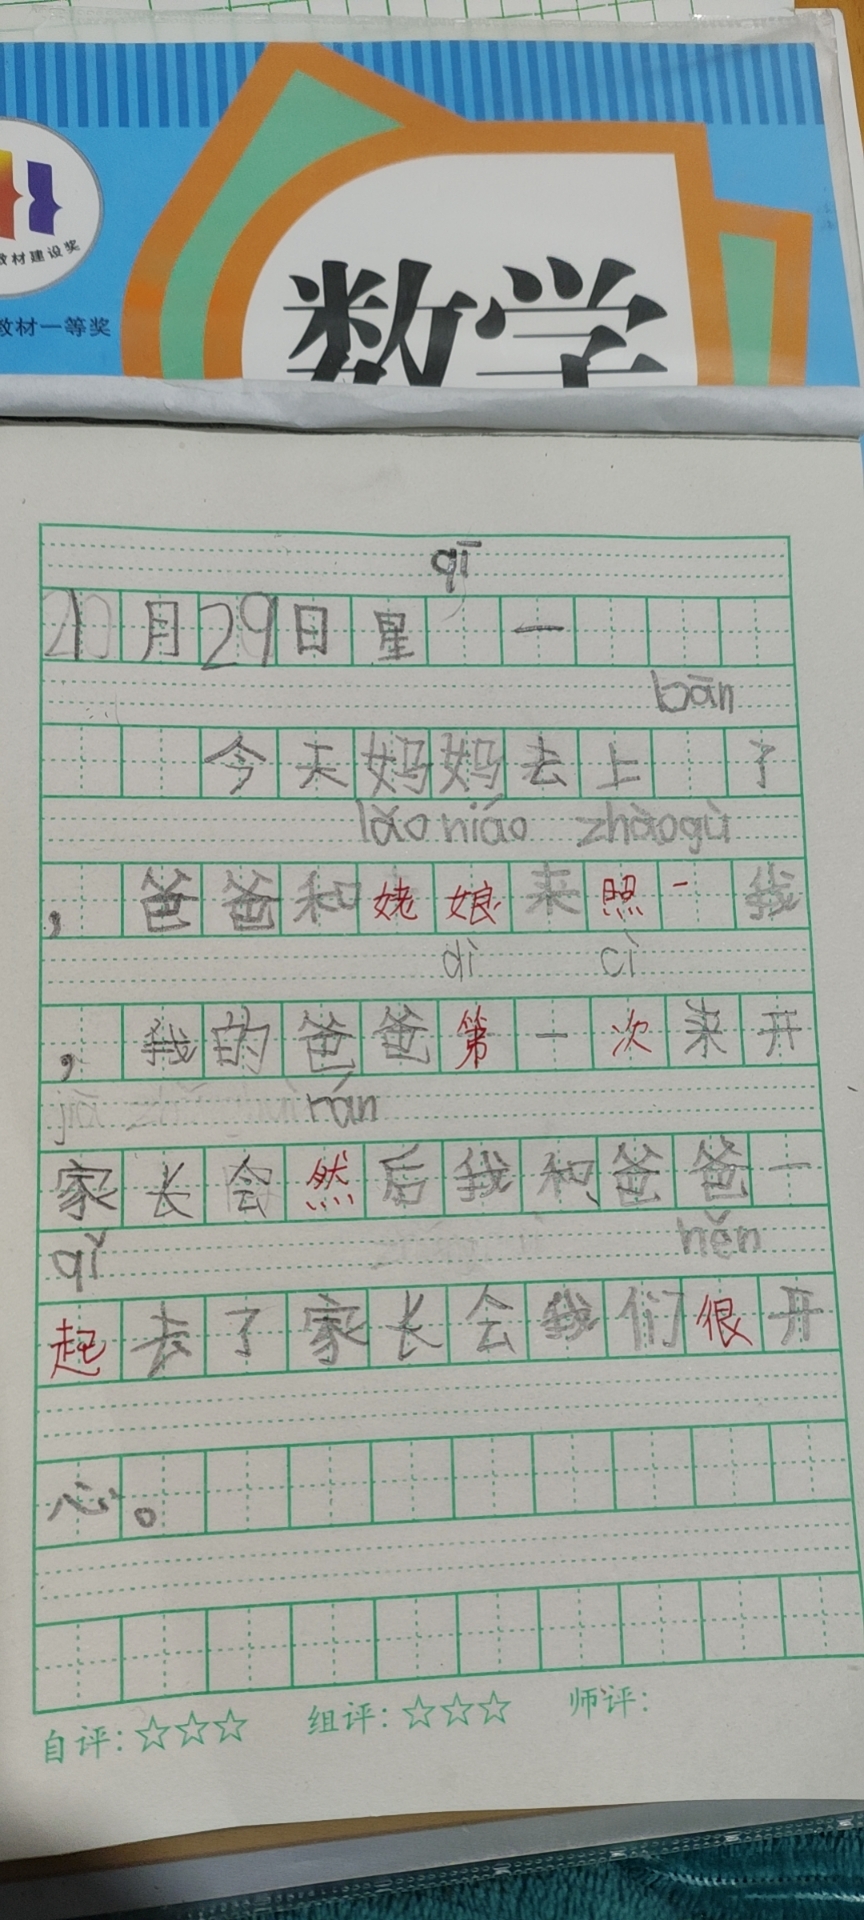 教材建设奖
教材一等奖
数学
qī
月29日星 一
bān
今天妈妈去上 了
lǎo niáo zhàogù
，爸爸和姥娘来照 我
dì cì
，我的爸爸第一次来开
rán
家长会然后我和爸爸一
qǐ hěn
起去了家长会我们很开
心。
自评：☆☆☆ 组评：☆☆☆ 师评：